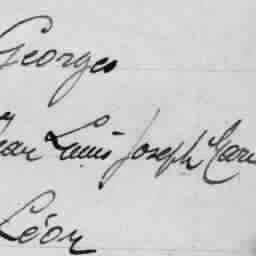 Georges
Jean Louis Joseph
Léon